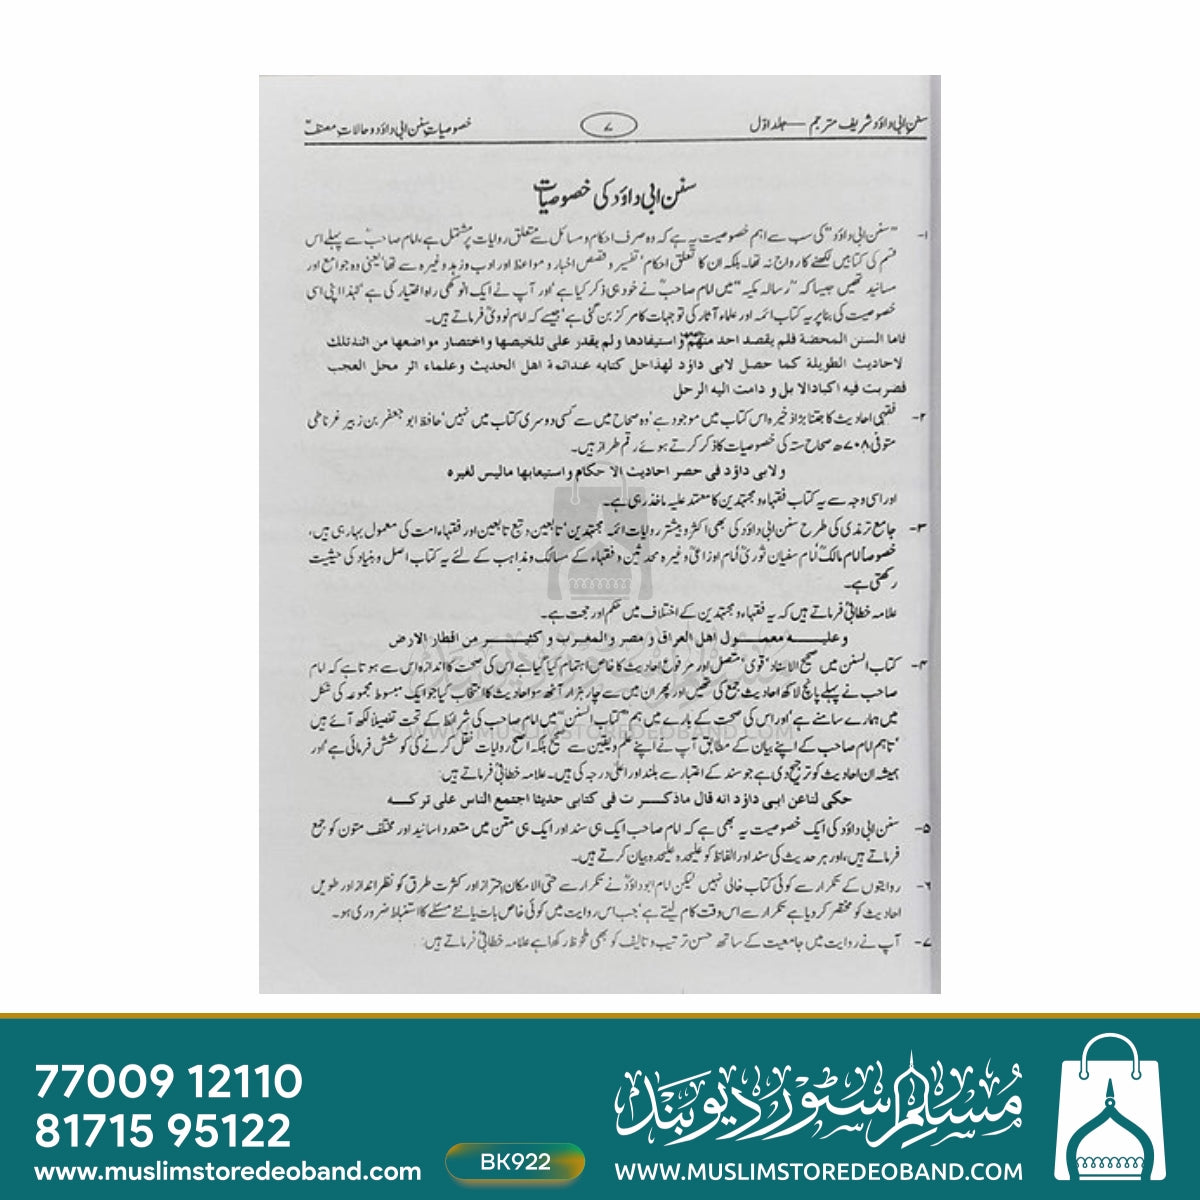 سنن ابی داؤد شریف مترجم — جلد اوّل
۷
خصوصیات سنن ابی داؤد و حالات مصنفؒ
سنن ابی داؤد کی خصوصیات
۱- ”سنن ابی داؤد“ کی سب سے اہم خصوصیت یہ ہے کہ وہ صرف احکام و مسائل سے متعلق روایات پر مشتمل ہے، امام صاحبؒ سے پہلے اس
قسم کی کتابیں لکھنے کا رواج نہ تھا۔ بلکہ ان کا تعلق احکام، تفسیر و قصص اخبار و مواعظ اور ادب و زہد وغیرہ سے تھا‘ یعنی وہ جوامع اور
مسانید تھیں جیسا کہ ”رسالہ مکیہ“ میں امام صاحبؒ نے خود ہی ذکر کیا ہے‘ اور آپ نے ایک انوکھی راہ اختیار کی ہے‘ لہٰذا اپنی اسی
خصوصیت کی بنا پر یہ کتاب ائمہ اور علماء آثار کی توجہات کا مرکز بن گئی ہے‘ جیسے کہ امام نوویؒ فرماتے ہیں۔
فاما السنن المحضة فلم یقصد احد منهم واستیفادها ولم یقدر علی تلخیصها واختصار مواضعها من اثناء تلك
لاحادیث الطویلة کما حصل لابی داؤد لهذا حل کتابه عند ائمة اهل الحدیث وعلماء اثر محل العجب
فضربت فیه اکباد الا بل و دامت الیه الرحل
۲- فقہی احادیث کا جتنا بڑا ذخیرہ اس کتاب میں موجود ہے‘ وہ صحاح میں سے کسی دوسری کتاب میں نہیں‘ حافظ ابو جعفر بن زبیر غرناطی
متوفی ۷۰۸ھ صحاح ستہ کی خصوصیات کا ذکر کرتے ہوئے رقم طراز ہیں۔
ولابی داؤد فی حصر احادیث الا حکام واستیعابها مالیس لغیره
اور اسی وجہ سے یہ کتاب فقہاء و مجتہدین کا معتمد علیہ ماخذ رہی ہے۔
۳- جامع ترمذی کی طرح سنن ابی داؤد کی بھی اکثر و بیشتر روایات ائمہ مجتہدین‘ تابعین و تبع تابعین اور فقہاء امت کی معمول بہا رہی ہیں،
خصوصاً امام مالکؒ‘ امام سفیان ثوریؒ‘ امام اوزاعیؒ وغیرہ محدثین و فقہاء کے مسالک و مذاہب کے لئے یہ کتاب اصل و بنیاد کی حیثیت
رکھتی ہے۔
علامہ خطابیؒ فرماتے ہیں کہ یہ فقہاء و مجتہدین کے اختلاف میں حکم اور حجت ہے۔
وعلیه معمول اهل العراق و مصر والمغرب و کثیر من اقطار الارض
۴- کتاب السنن میں صحیح الاسناد‘ قوی‘ متصل اور مرفوع احادیث کا خاص اہتمام کیا گیا ہے اس کی صحت کا اندازہ اس سے ہوتا ہے کہ امام
صاحب نے پہلے پانچ لاکھ احادیث جمع کی تھیں اور پھر ان میں سے چار ہزار آٹھ سو احادیث کا انتخاب کیا جو ایک مبسوط مجموعہ کی شکل
میں ہمارے سامنے ہے‘ اور اس کی صحت کے بارے میں ہم ”کتاب السنن“ میں امام صاحب کی شرائط کے تحت تفصیلاً لکھ آئے ہیں
تاہم امام صاحب کے اپنے بیان کے مطابق آپ نے اپنے علم و یقین سے صحیح بلکہ اصح روایات نقل کرنے کی کوشش فرمائی ہے‘ اور
ہمیشہ ان احادیث کو ترجیح دی ہے جو سند کے اعتبار سے بلند اور اعلیٰ درجہ کی ہیں۔ علامہ خطابیؒ فرماتے ہیں:
حکی لنا عن ابی داؤد انه قال ماذکرت فی کتابی حدیثا اجتمع الناس علی ترکه
۵- سنن ابی داؤد کی ایک خصوصیت یہ بھی ہے کہ امام صاحب ایک ہی سند اور ایک ہی متن میں متعدد اسانید اور مختلف متون کو جمع
فرماتے ہیں، اور ہر حدیث کی سند اور الفاظ کو علیحدہ علیحدہ بیان کرتے ہیں۔
۶- روایتوں کے تکرار سے کوئی کتاب خالی نہیں لیکن امام ابو داؤدؒ نے تکرار سے حتی الامکان احتراز اور کثرت طرق کو نظر انداز اور طویل
احادیث کو مختصر کر دیا ہے تکرار سے اس وقت کام لیتے ہے‘ جب اس روایت میں کوئی خاص بات یا نئے مسئلے کا استنباط ضروری ہو۔
۷- آپ نے روایت میں جامعیت کے ساتھ حسن ترتیب و تالیف کو بھی ملحوظ رکھا ہے علامہ خطابیؒ فرماتے ہیں:
WWW.MUSLIMSTOREDEOBAND.COM
77009 12110
81715 95122
www.muslimstoredeoband.com
BK922
مسلم سٹور دیوبند
WWW.MUSLIMSTOREDEOBAND.COM